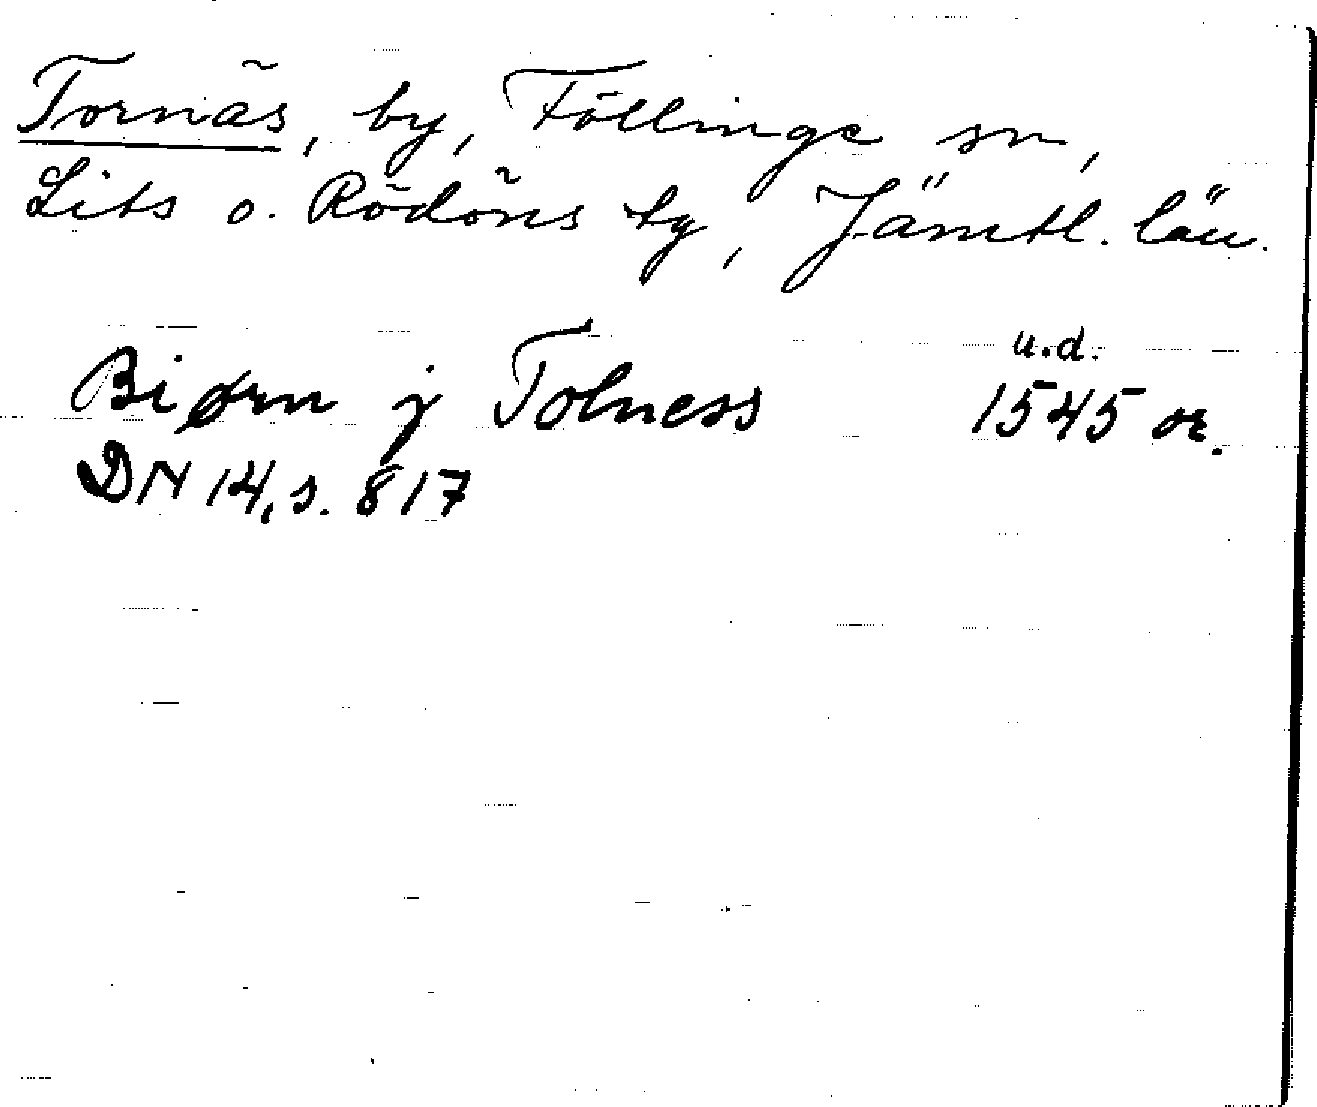 Tornäs, by, Föllinge sn,
Lits o. Rödöns tg, Jämtl. län.
u.d.
Biørn j Tolness 1545 or.
DN 14, s. 817